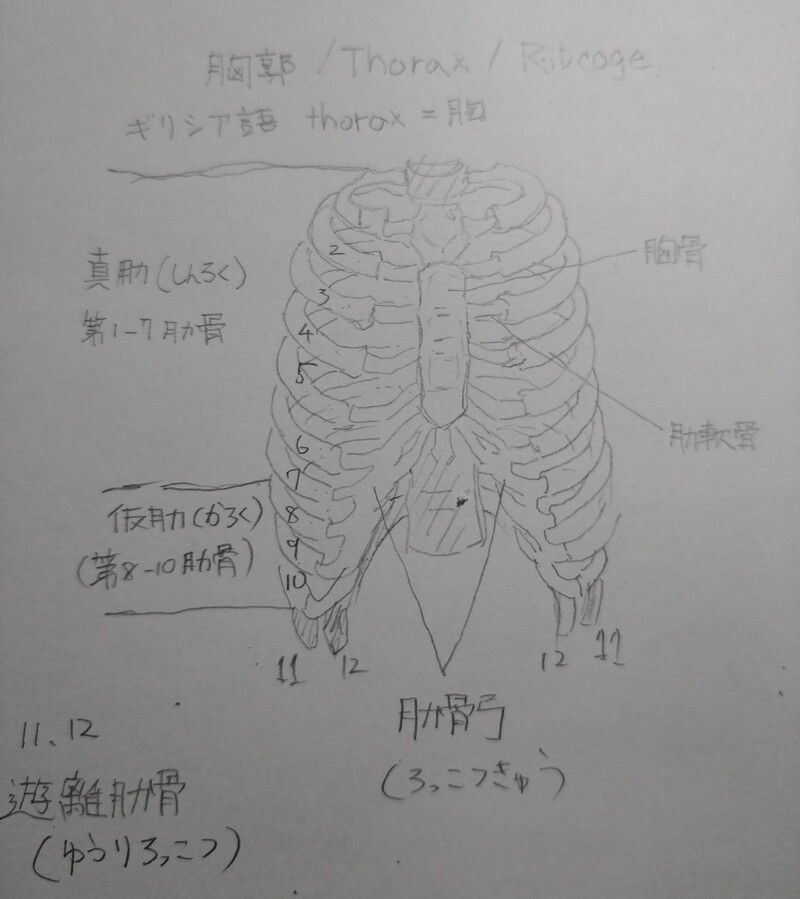 胸郭 / Thorax / Ribcage
ギリシア語 thorax = 胸
真肋 (しんろく)
第1-7肋骨
胸骨
肋軟骨
1
2
3
4
5
6
7
8
9
10
仮肋 (かろく)
(第8-10肋骨)
11 12
12 11
肋骨弓
(ろっこつきゅう)
11.12
遊離肋骨
(ゆうりろっこつ)